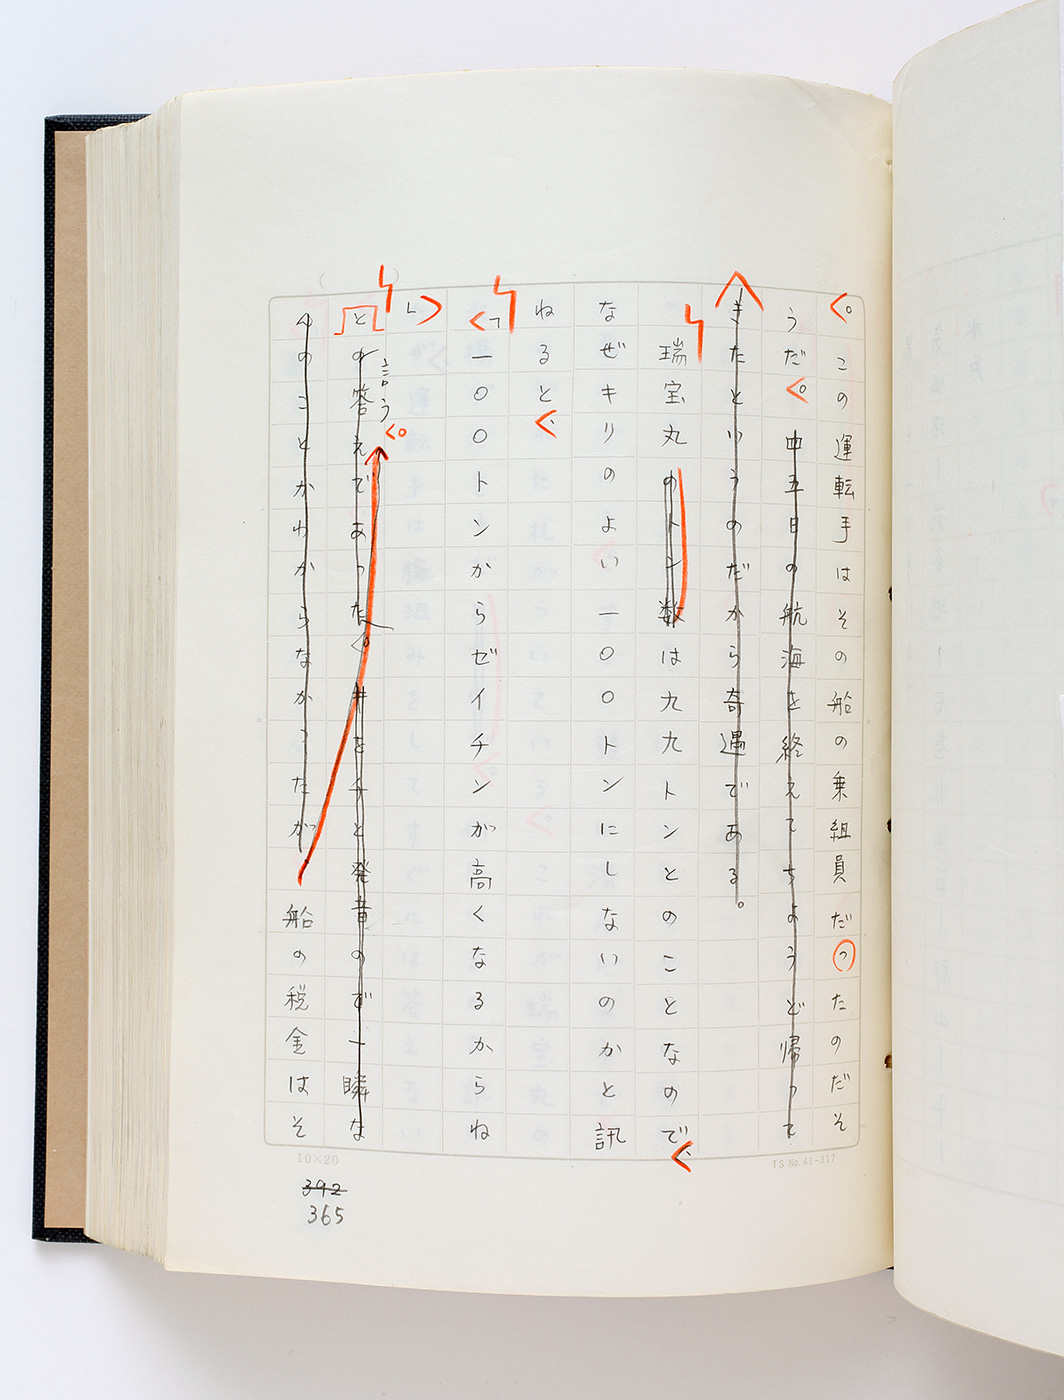 。この運転手はその船の乗組員だったのだそ
うだ。四五日の航海を終えてちょうど帰って
きたというのだから奇遇である。
瑞宝丸のトン数は九九トンとのことなので、
なぜキリのよい一〇〇トンにしないのかと訊
ねると、
「一〇〇トンからゼイチンが高くなるからね
」
言う。
との答えであった。キをチと発音ので一瞬な
んのことかわからなかったが、船の税金はそ
10×20
TS No. 41-317
392
365